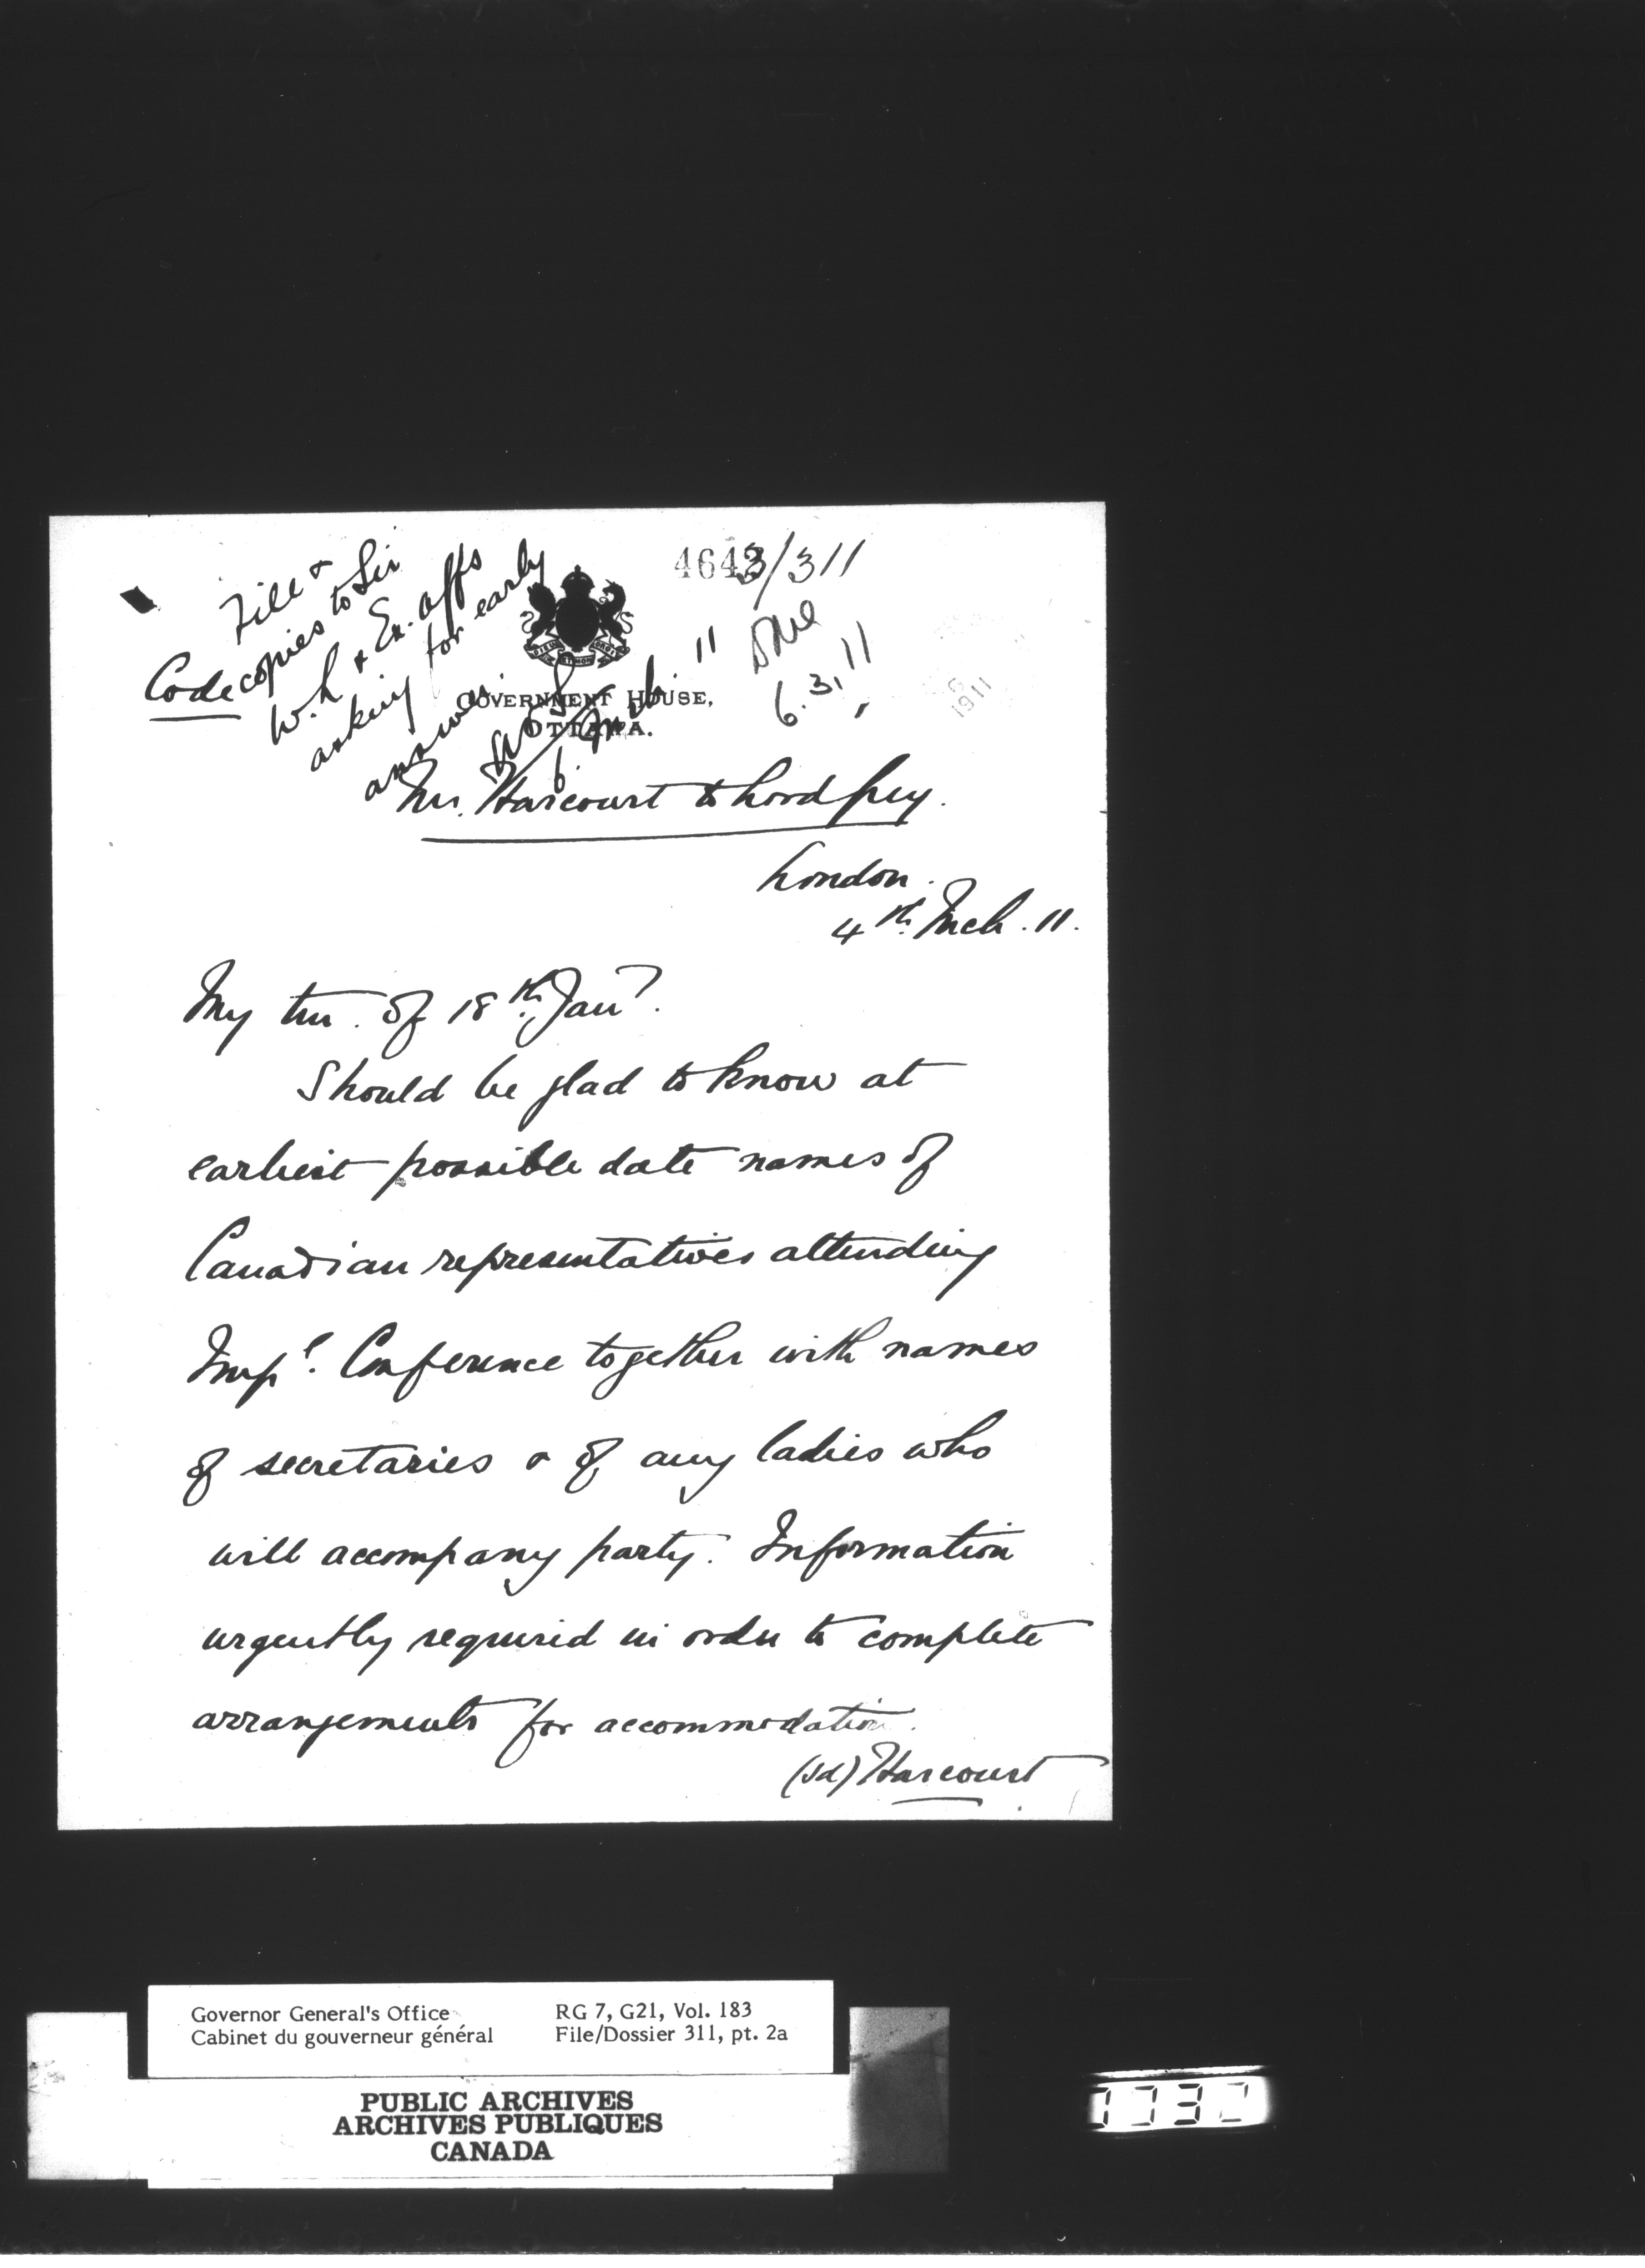 4643/311
File &
Code copies to Sir
W. L & Ex. Affs
asking for early
answer
6. Mch. 11
Done
6.3.11
1911
DIEU ET MON DROIT
GOVERNMENT HOUSE,
OTTAWA.
Mr. Harcourt to Lord Grey.
London.
4th. Mch. 11.
My tm. of 18th. Jany.
Should be glad to know at
earliest possible date names of
Canadian representatives attending
Impl. Conference together with names
of secretaries & of any ladies who
will accompany party. Information
urgently required in order to complete
arrangements for accommodation.
(sd) Harcourt
Governor General's Office
Cabinet du gouverneur général
RG 7, G21, Vol. 183
File/Dossier 311, pt. 2a
PUBLIC ARCHIVES
ARCHIVES PUBLIQUES
CANADA